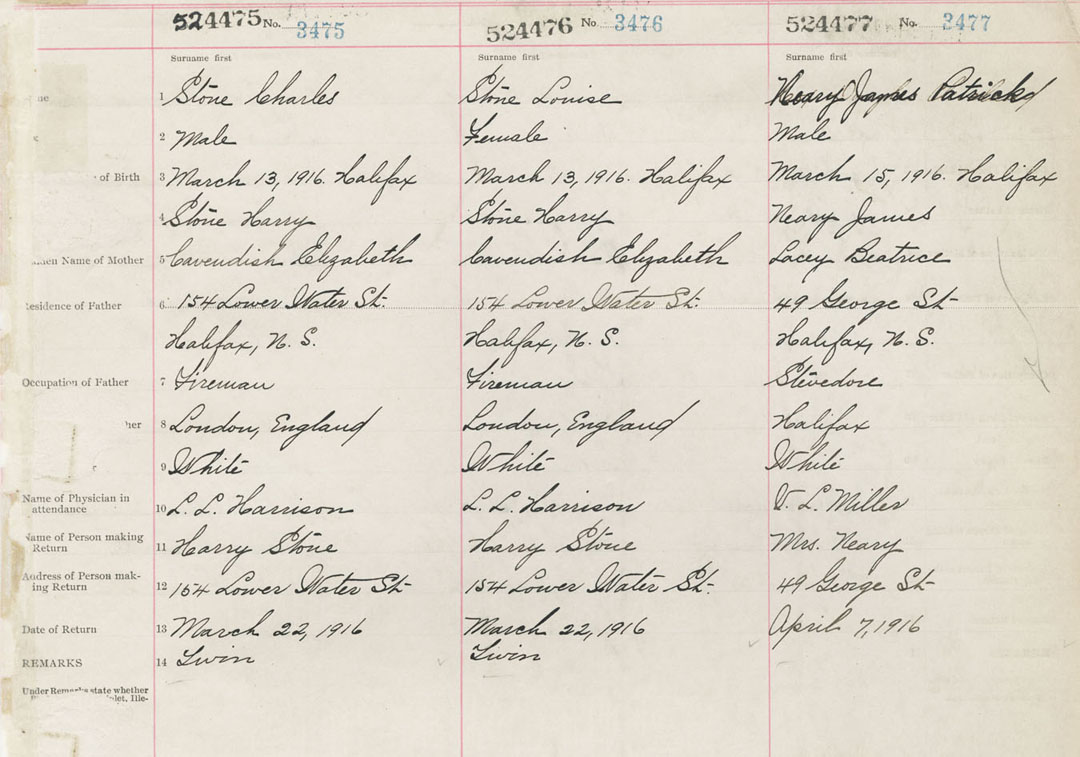 524475 No. 3475 524476 No 3476 524477 No. 3477
Surname first Surname first Surname first
1 Stone Charles Stone Louise Neary James Patrick
2 Male Female Male
of Birth 3 March 13, 1916. Halifax March 13, 1916. Halifax March 15, 1916. Halifax
4 Stone Harry Stone Harry Neary James
Name of Mother 5 Cavendish Elizabeth Cavendish Elizabeth Lacey Beatrice
Residence of Father 6 154 Lower Water St. 154 Lower Water St. 49 George St
Halifax, N. S. Halifax, N. S. Halifax, N. S.
Occupation of Father 7 Fireman Fireman Stevedore
8 London, England London, England Halifax
9 White White White
Name of Physician in
attendance 10 L. L. Harrison L. L. Harrison L. Miller
Name of Person making
Return 11 Harry Stone Harry Stone Mrs. Neary
Address of Person mak-
ing Return 12 154 Lower Water St 154 Lower Water St. 49 George St
Date of Return 13 March 22, 1916 March 22, 1916 April 7, 1916
REMARKS 14 Twin Twin
Under Remarks state whether
Ille-